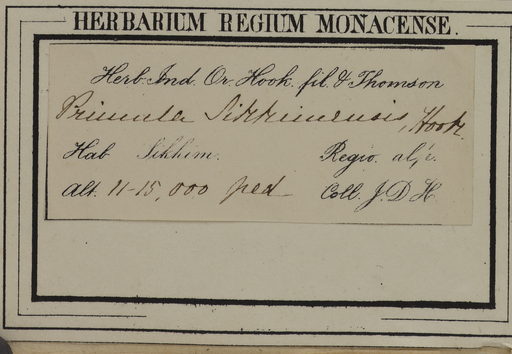 HERBARIUM REGIUM MONACENSE.
Herb. Ind. Or. Hook. fil. & Thomson
Primula Sikkimensis, Hook.
Hab Sikkim. Regio. alp.
Alt. 11-15,000 ped Coll. J. D. H.